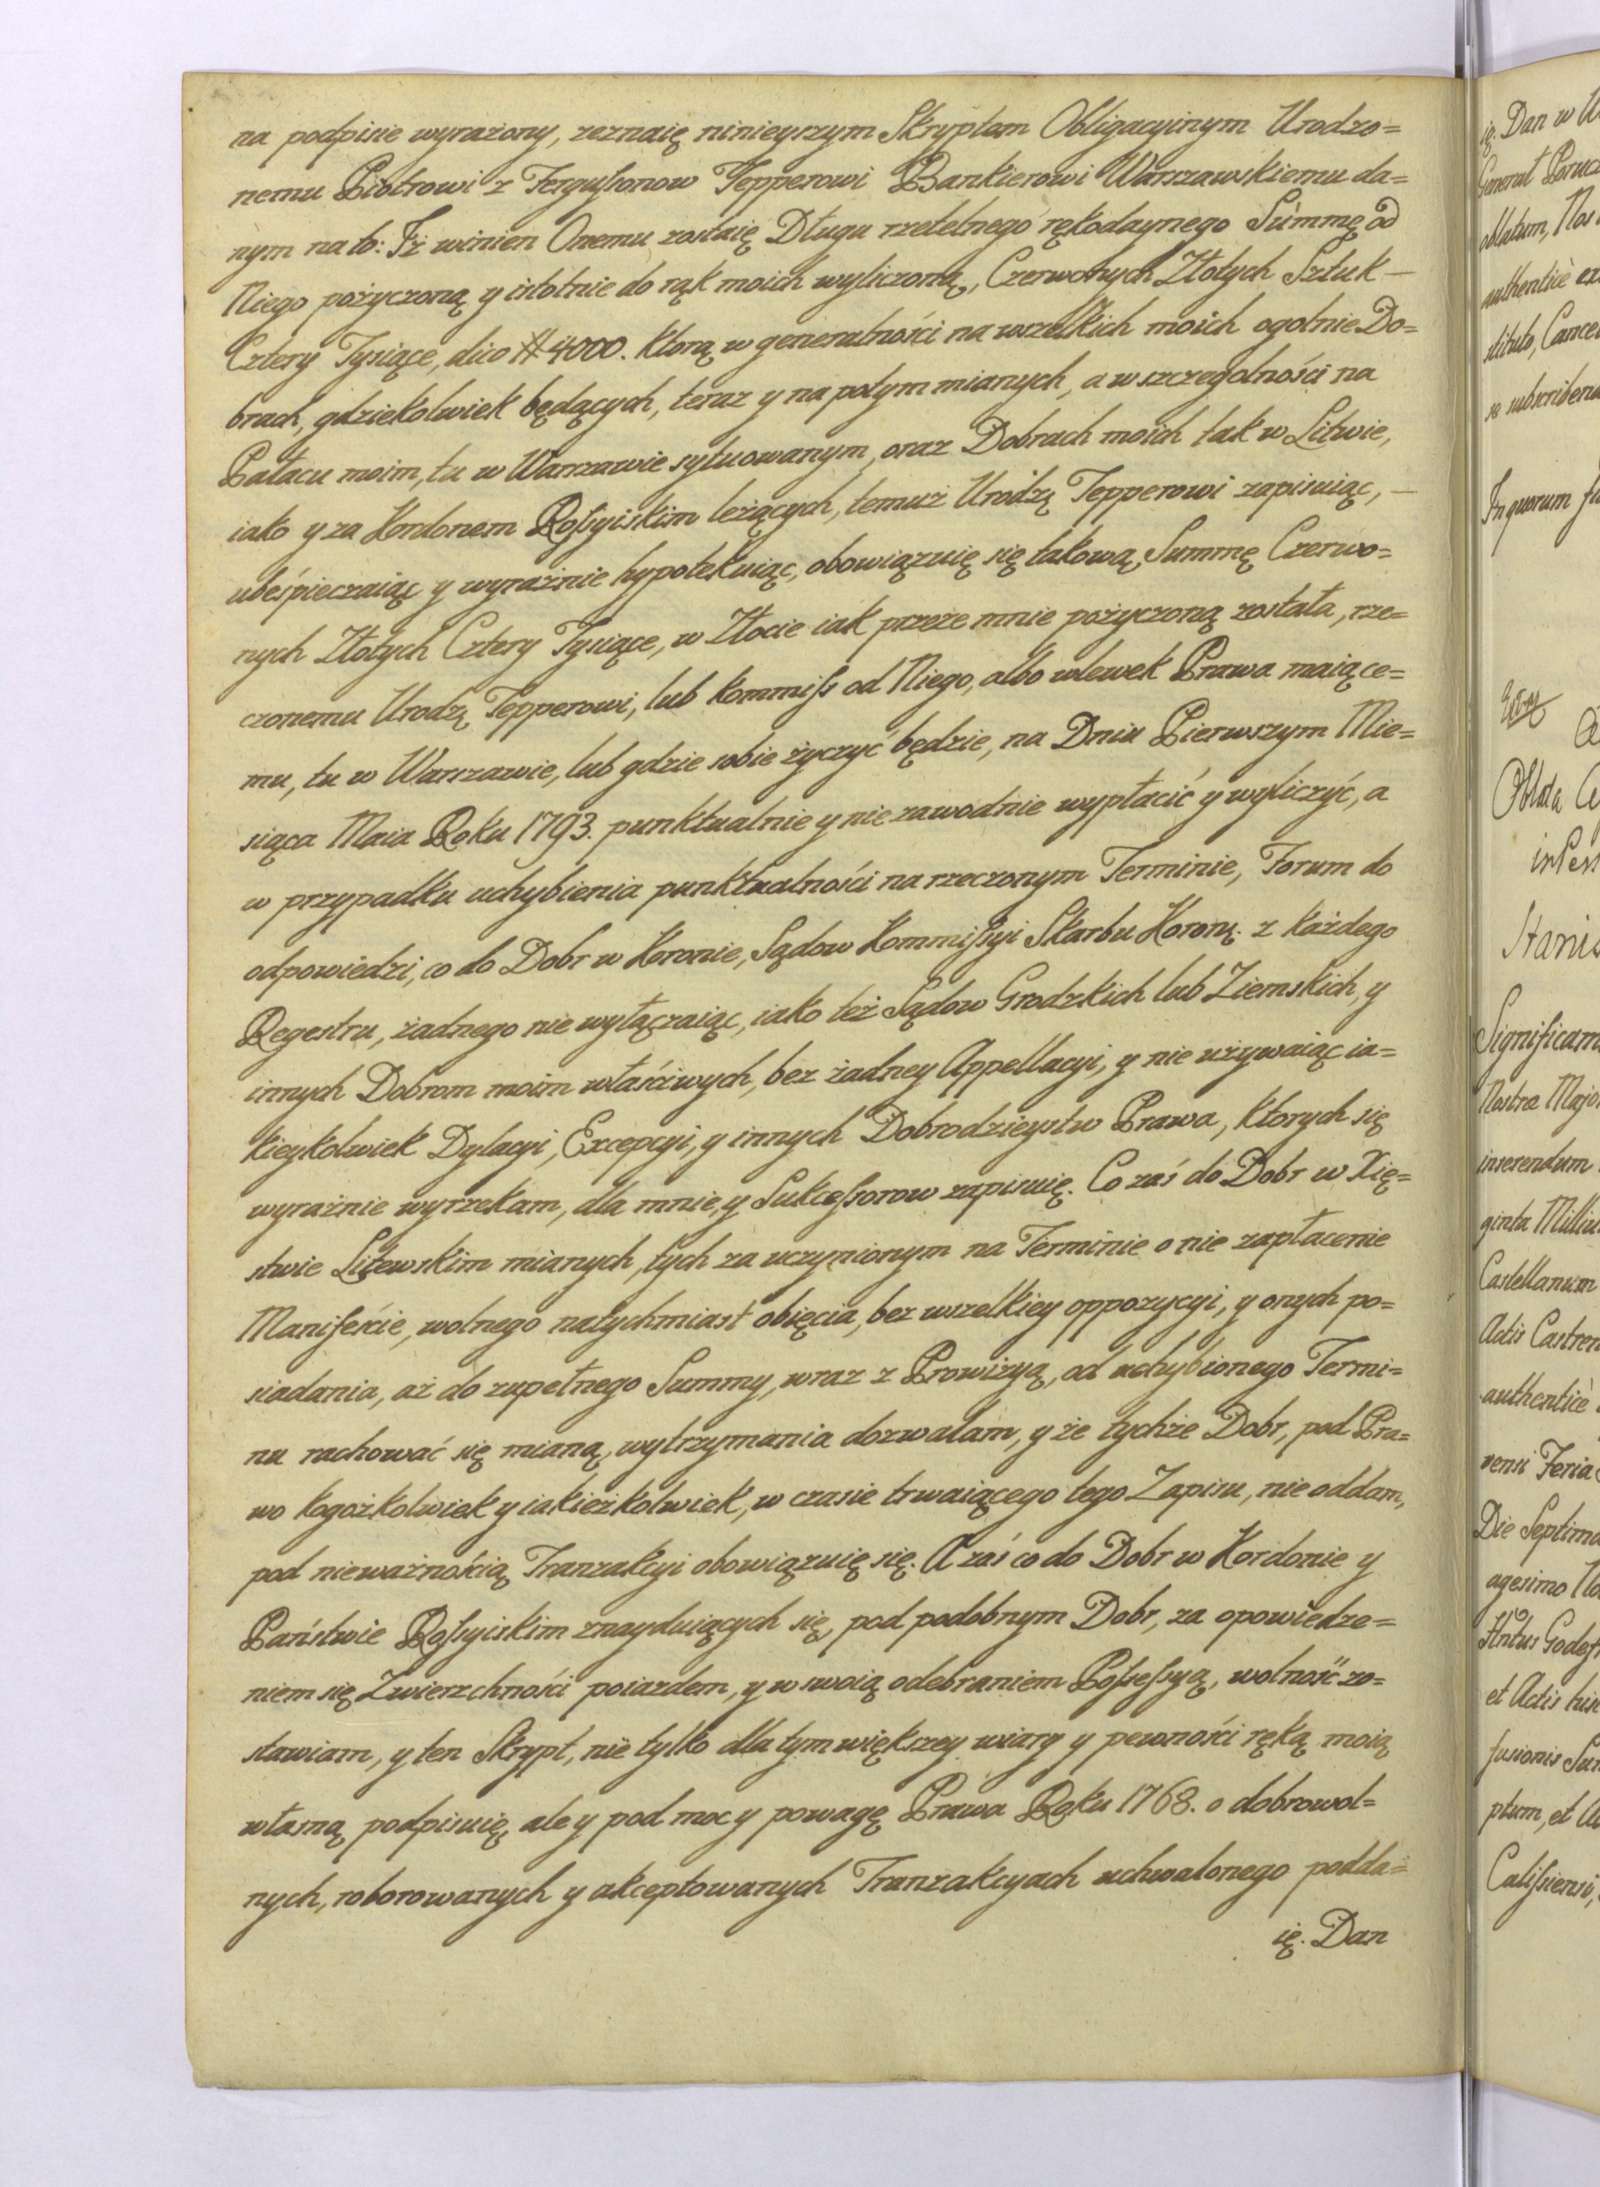 na podpisie wyrażony, zeznaię ninieyszym Skryptem Obligacyinym Urodzo=
nemu Piotrowi z Fergussonow Tepperowi Bankierowi Warszawskiemu da=
nym na to: Iż winien Onemu zostaię Długu rzetelnego rękodaynego Summę od
Niego pożyczoną y istotnie do rąk moich wyliczoną, Czerwonych Złotych Sztuk —
Cztery Tysiące, dico # 4000. którą w generalności na wszelkich moich ogolnie Do=
brach, gdziekolwiek będących, teraz y na potym mianych, a w szczegolności na
Pałacu moim, tu w Warszawie sytuowanym, oraz Dobrach moich tak w Litwie,
iako y za Kordonem Rossyiskim leżących, temuż Urodzą Tepperowi zapisuiąc, —
ubespieczaiąc y wyraźnie hypotekuiąc, obowiązuię się takową Summę Czerwo=
nych Złotych Cztery Tysiące, w Złocie iak przeze mnie pożyczoną została, rze=
czonemu Urodzą Tepperowi, lub kommiss od Niego, albo wlewek Prawa maiące=
mu, tu w Warszawie, lub gdzie sobie życzyć będzie, na Dniu Pierwszym Mie=
siąca Maia Roku 1793. punktualnie y nie zawodnie wypłacić y wyliczyć, a
w przypadku uchybienia punktualności na rzeczonym Terminie, Forum do
odpowiedzi, co do Dobr w Koronie, Sądow Kommissyi Skarbu Koroną. z każdego
Regestru, żadnego nie wyłączaiąc, iako też Sądow Grodzkich lub Ziemskich, y
innych Dobrom moim właściwych, bez żadney Appellacyi, y nie używaiąc ia=
kieykolwiek Dylacyi, Excepcyi, y innych Dobrodzieystw Prawa, ktorych się
wyraźnie wyrzekam, dla mnie, y Sukcessorow zapisuię. Co zaś do Dobr w Xię=
stwie Litewskim mianych, tych za uczynionym na Terminie o nie zapłacenie
Manifeście, wolnego natychmiast obięcia, bez wszelkiey oppozycyi, y onych po=
siadania, aż do zupełnego Summy, wraz z Prowizyą, od uchybionego Termi=
nu rachować się mianą, wytrzymania dozwalam, y że tychże Dobr, pod Pra=
wo kogożkolwiek y iakieżkolwiek, w czasie trwaiącego tego Zapisu, nie oddam,
pod nieważnością Tranzakcyi obowiązuię się. A zaś co do Dobr w Kordonie y
Państwie Rossyiskim znayduiących się, pod podobnym Dobr, za opowiedze=
niem się Zwierzchności poiazdem, y w swoią odebraniem Possessyą, wolność zo=
stawiam, y ten Skrypt, nie tylko dla tym większey wiary y pewności ręką moią
własną podpisuię, ale y pod moc y powagę Prawa Roku 1768. o dobrowol=
nych, roborowanych y akceptowanych Tranzakcyach uchwalonego podda=
ię. Dan
ię. Dan w
General
oblatum, Nos
authenticè
stituto,
se
In quorum
Oblata
Stanis
Significam
Nostra
inserendum
ginta
Castellanum
Actis Castren
authenticè
rensi Feria
Die Septima
agesimo
et Actis
fusionis
ptum, et
Calissiensi,